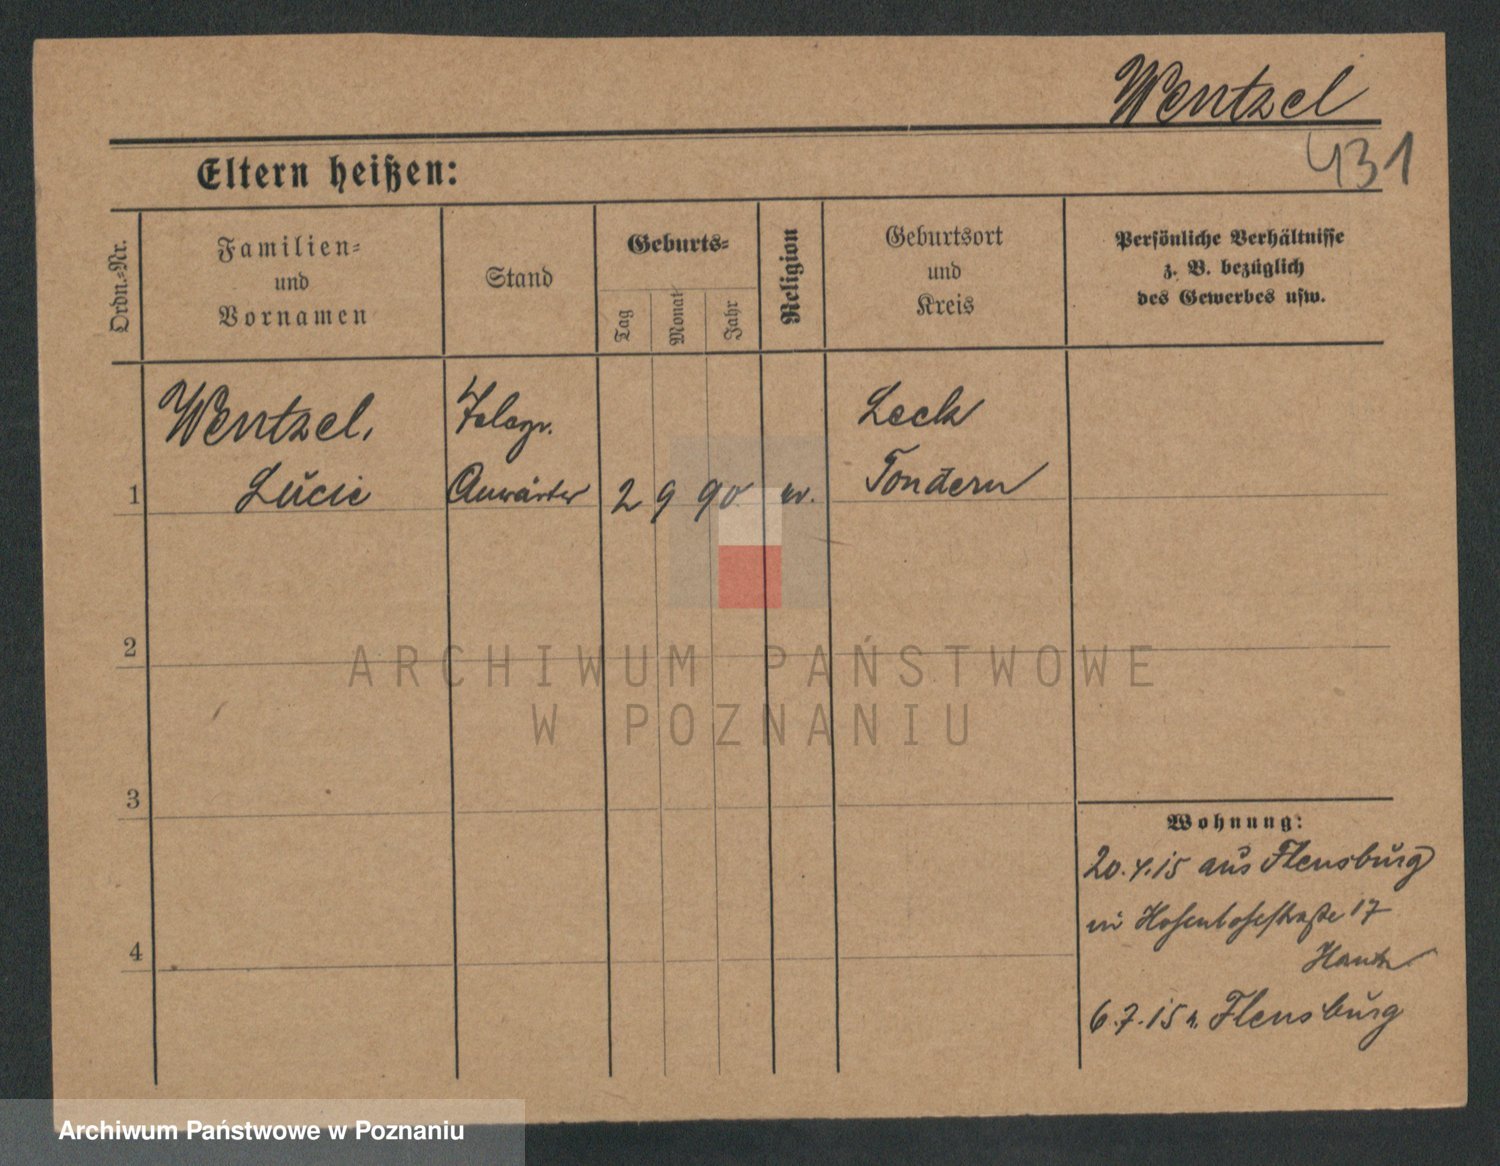 Wentzel
431
Eltern heißen:
Ordn.-Nr.
Familien-
und
Vornamen
Stand
Geburts-
Tag
Monat
Jahr
Religion
Geburtsort
und
Kreis
Persönliche Verhältnisse
z. B. bezüglich
des Gewerbes usw.
Wentzel,
Telegr.
Leck
1 Lucie Anwärter 2 9 90 ev. Tondern
2
ARCHIWUM PAŃSTWOWE
W POZNANIU
3
Wohnung:
20.4.15 aus Flensburg
17
4
6.7.15 n. Flensburg
Archiwum Państwowe w Poznaniu